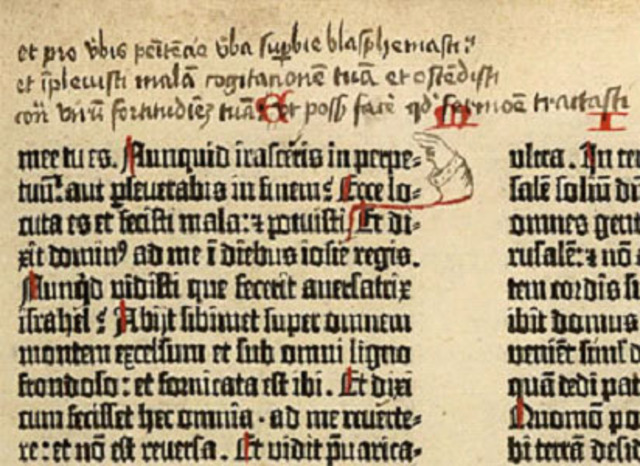 et pro v̄bis penitēcie v̄ba suꝑbie blasphemasti
et īplevisti malā cogitationē tuā et ostēdisti
cōt̄ virū fortitudinē tuā ut possꝭ facē qđ sermoē tractasti
mee tu es. Nunquid irasceris in perpe⸗
tuū: aut ꝑseverabis in finem? Ecce lo⸗
cuta es et fecisti mala: ⁊ potuisti. Et di⸗
xit dominꝰ ad me ī diebus iosie regis.
Nunqd vidisti que fecerit aversatrix
israhel? Abijt sibimet super omnem
montem excelsum et sub omni ligno
frondoso: et fornicata est ibi. Et dixi
cum fecisset hec omnia · ad me reverte⸗
re: et nō est reversa. Et vidit p̄varica⸗
ultra. In te
salē soliū d
omnes gen
rusalē: ⁊ nō
tem cordis
ibit domus
veniēt siml̄ d
quā dedi pat
Quomō po
bi terrā desid